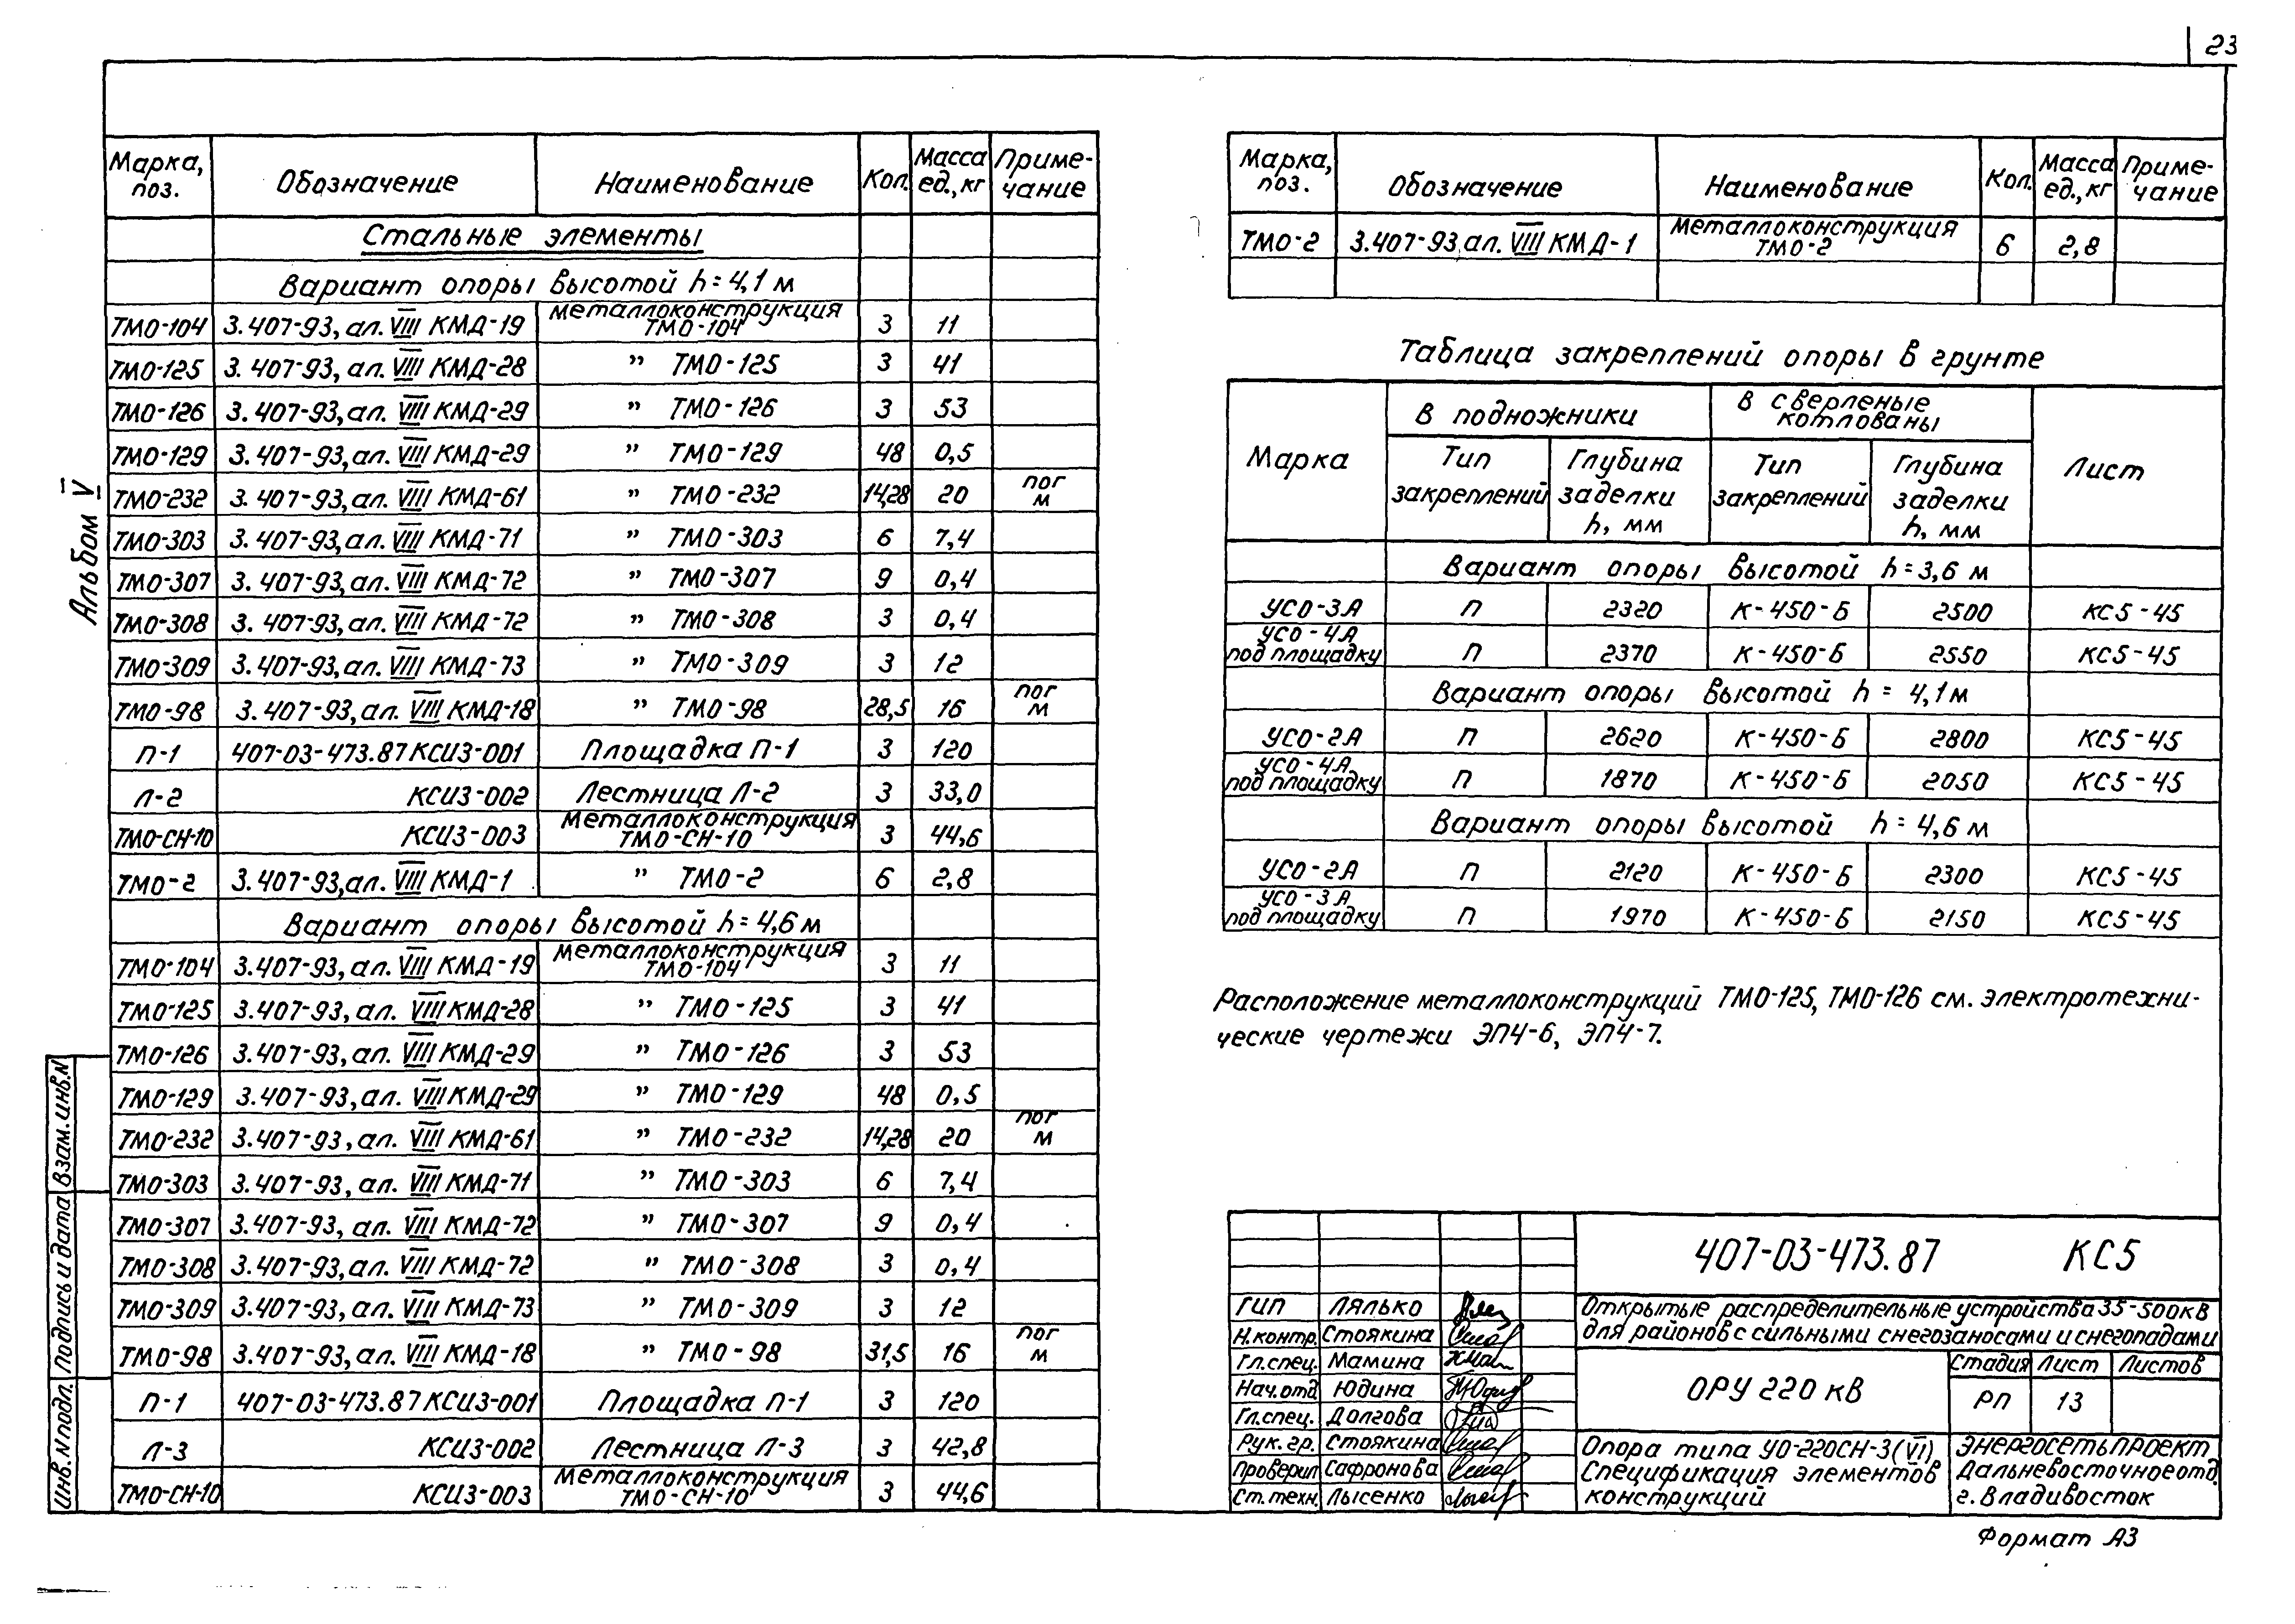 23
Альбом V
Марка, поз. Обозначение Наименование Кол. Масса ед., кг Примечание
Стальные элементы
Вариант опоры высотой h = 4,1 м
ТМО-104 3.407-93, ал. VIII КМД-19 Металлоконструкция ТМО-104 3 11
ТМО-125 3.407-93, ал. VIII КМД-28 " ТМО-125 3 41
ТМО-126 3.407-93, ал. VIII КМД-29 " ТМО-126 3 53
ТМО-129 3.407-93, ал. VIII КМД-29 " ТМО-129 48 0,5
ТМО-232 3.407-93, ал. VIII КМД-61 " ТМО-232 14,28 20 пог м
ТМО-303 3.407-93, ал. VIII КМД-71 " ТМО-303 6 7,4
ТМО-307 3.407-93, ал. VIII КМД-72 " ТМО-307 9 0,4
ТМО-308 3.407-93, ал. VIII КМД-72 " ТМО-308 3 0,4
ТМО-309 3.407-93, ал. VIII КМД-73 " ТМО-309 3 12
ТМО-98 3.407-93, ал. VIII КМД-18 " ТМО-98 28,5 16 пог м
П-1 407-03-473.87 КСИ3-001 Площадка П-1 3 120
Л-2 КСИ3-002 Лестница Л-2 3 33,0
ТМО-СН-10 КСИ3-003 Металлоконструкция ТМО-СН-10 3 44,6
ТМО-2 3.407-93, ал. VIII КМД-1 " ТМО-2 6 2,8
Вариант опоры высотой h = 4,6 м
ТМО-104 3.407-93, ал. VIII КМД-19 Металлоконструкция ТМО-104 3 11
ТМО-125 3.407-93, ал. VIII КМД-28 " ТМО-125 3 41
ТМО-126 3.407-93, ал. VIII КМД-29 " ТМО-126 3 53
ТМО-129 3.407-93, ал. VIII КМД-29 " ТМО-129 48 0,5
ТМО-232 3.407-93, ал. VIII КМД-61 " ТМО-232 14,28 20 пог м
ТМО-303 3.407-93, ал. VIII КМД-71 " ТМО-303 6 7,4
ТМО-307 3.407-93, ал. VIII КМД-72 " ТМО-307 9 0,4
ТМО-308 3.407-93, ал. VIII КМД-72 " ТМО-308 3 0,4
ТМО-309 3.407-93, ал. VIII КМД-73 " ТМО-309 3 12
ТМО-98 3.407-93, ал. VIII КМД-18 " ТМО-98 31,5 16 пог м
П-1 407-03-473.87 КСИ3-001 Площадка П-1 3 120
Л-3 КСИ3-002 Лестница Л-3 3 42,8
ТМО-СН-10 КСИ3-003 Металлоконструкция ТМО-СН-10 3 44,6
Инв. N подл. Подпись и дата Взам. инв. N
Марка, поз. Обозначение Наименование Кол. Масса ед., кг Примечание
ТМО-2 3.407-93, ал. VIII КМД-1 Металлоконструкция ТМО-2 6 2,8
Таблица закреплений опоры в грунте
Марка В подножники В сверленые котлованы Лист
Тип закреплений Глубина заделки h, мм Тип закреплений Глубина заделки h, мм
Вариант опоры высотой h = 3,6 м
УСО-3А П 2320 К-450-Б 2500 КС5-45
УСО-4А под площадку П 2370 К-450-Б 2550 КС5-45
Вариант опоры высотой h = 4,1 м
УСО-2А П 2620 К-450-Б 2800 КС5-45
УСО-4А под площадку П 1870 К-450-Б 2050 КС5-45
Вариант опоры высотой h = 4,6 м
УСО-2А П 2120 К-450-Б 2300 КС5-45
УСО-3А под площадку П 1970 К-450-Б 2150 КС5-45
Расположение металлоконструкций ТМО-125, ТМО-126 см. электротехни-
ческие чертежи ЭП4-6, ЭП4-7.
407-03-473.87 КС5
ГИП Лялько
Н.контр. Стоякина
Гл.спец. Мамина
Нач.отд Юдина
Гл.спец. Долгова
Рук.гр. Стоякина
Проверил Сафронова
Ст.техн. Лысенко
Открытые распределительные устройства 35-500кВ
для районов с сильными снегозаносами и снегопадами
ОРУ 220 кВ
Стадия Лист Листов
РП 13
Опора типа УО-220СН-3(VI)
Спецификация элементов
конструкций
Энергосетьпроект
Дальневосточное отд.
г. Владивосток
Формат А3